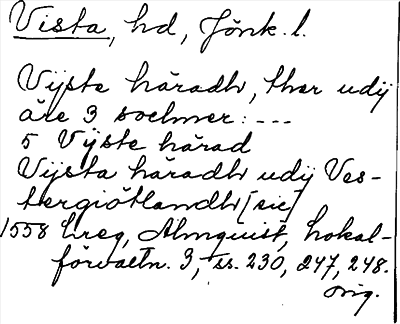 Vista, hd, Jönk. l.
Vijste häradh, ther udij
äre 3 sochner: ---
5 Vijste härad
Vijsta häradh udij Ves-
tergiötlandh [sic]
1558 Ereg, Almquist, Lokal-
förvaltn. 3, ss. 230, 247, 248.
orig.